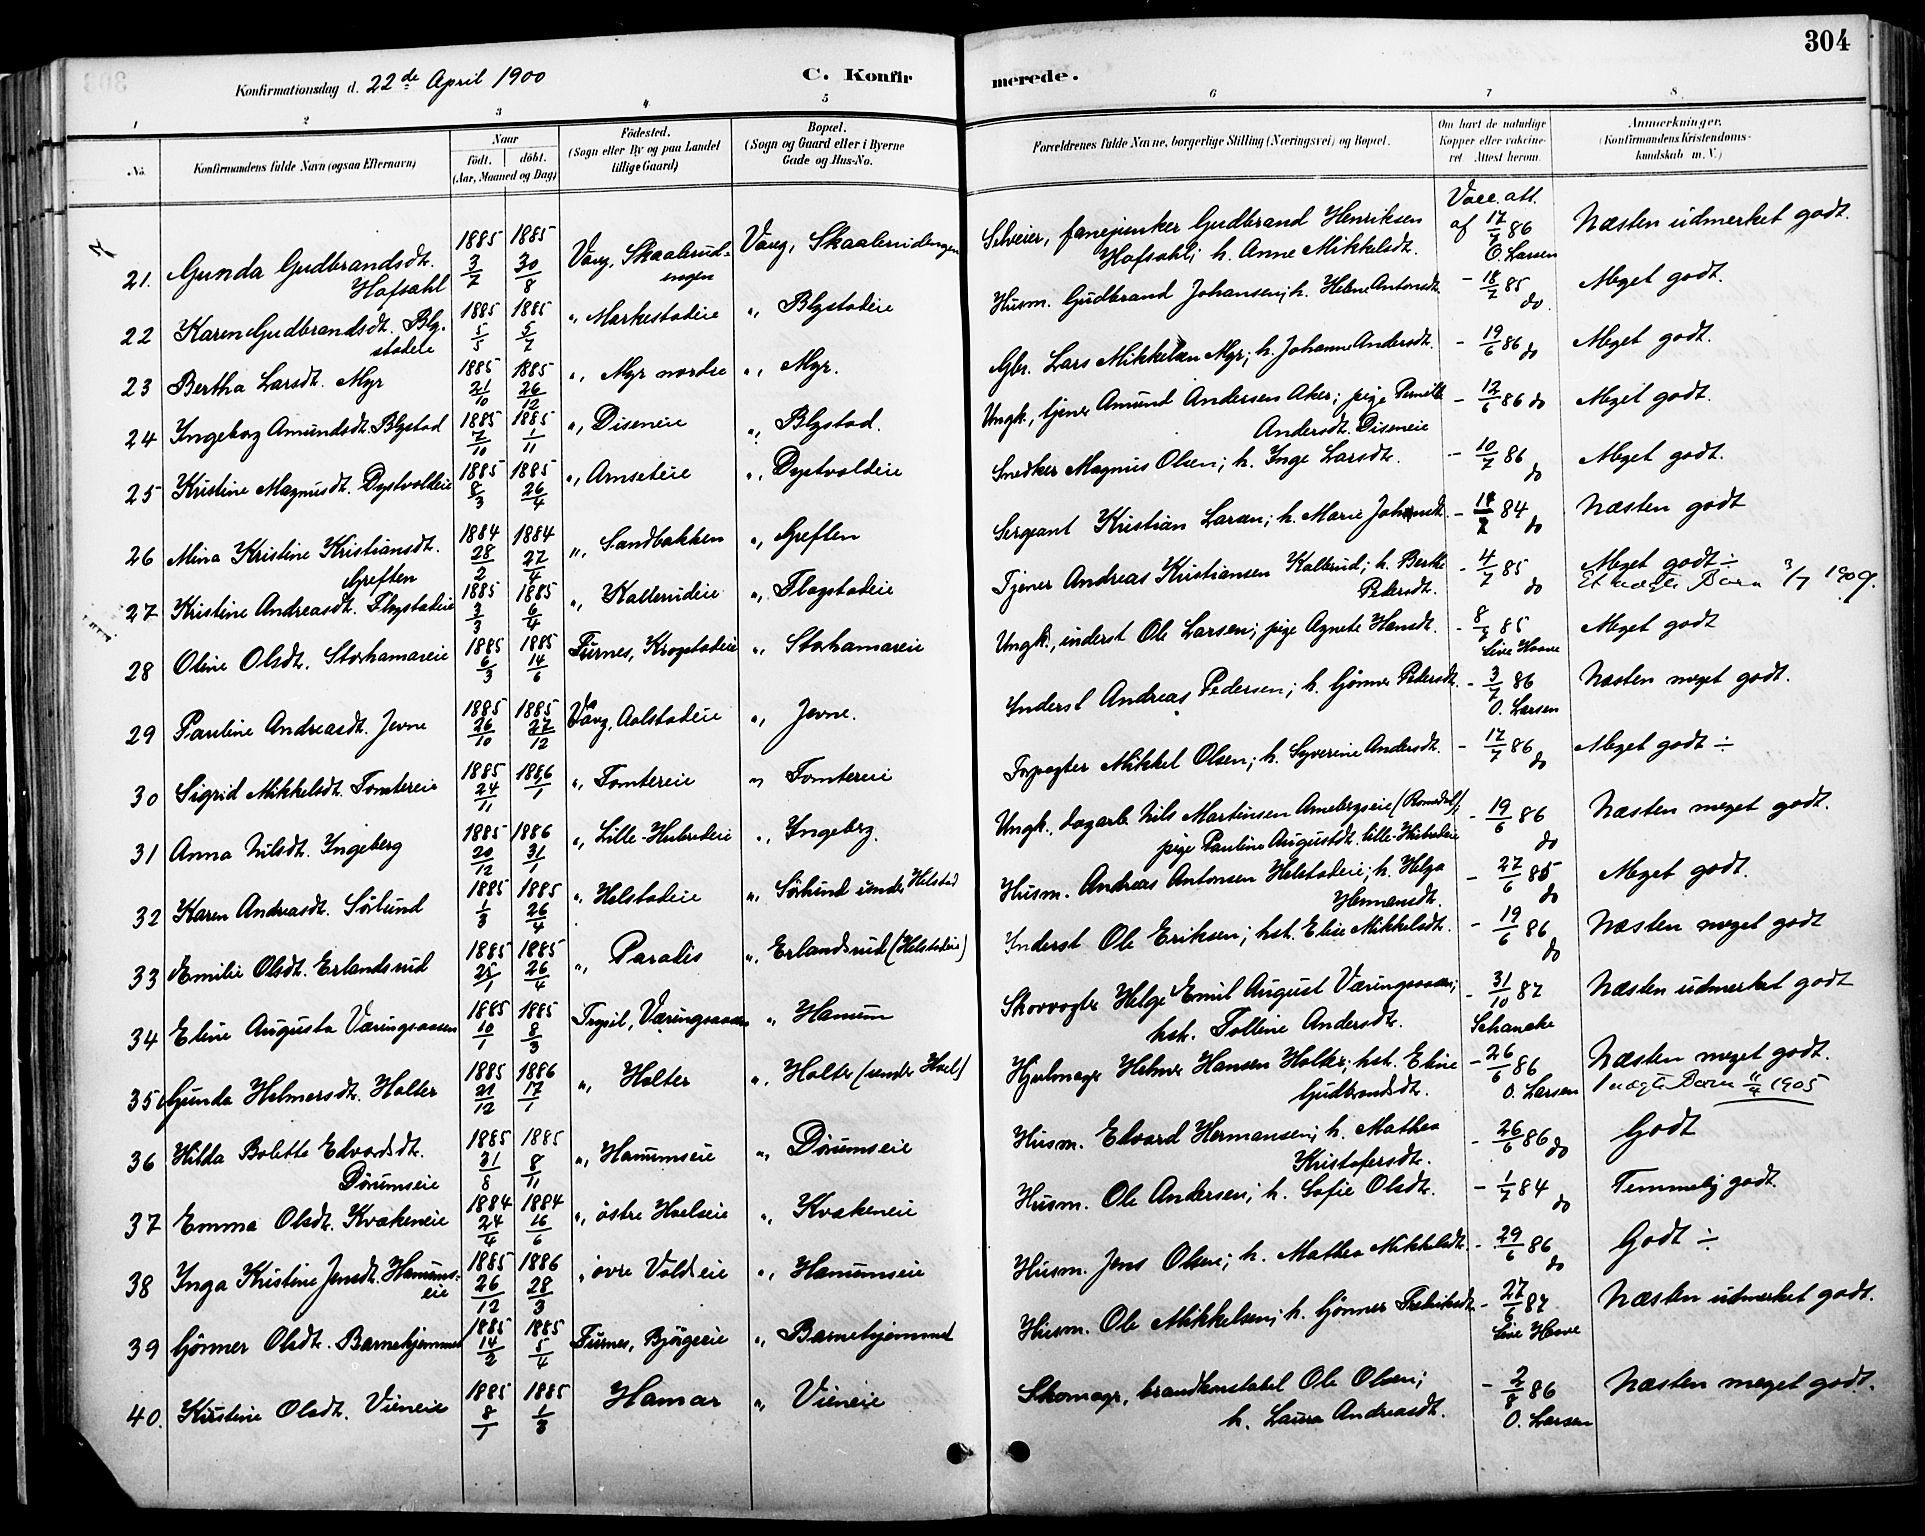 304
Konfirmationsdag d. 22de April 1900
C. Konfirmerede.
1 2 3 4 5 6 7 8
No.
Konfirmandens fulde Navn (ogsaa Efternavn)
Naar
født. døbt.
(Aar, Maaned og Dag)
Födested.
(Sogn eller By og paa Landet tillige Gaard)
Bopæl.
(Sogn og Gaard eller i Byerne Gade og Hus-No.
Forældrenes fulde Navne, borgerlige Stilling (Næringsvei) og Bopæl.
Om havt de naturlige Kopper eller vakcineret Attest herom.
Anmerkninger.
(Konfirmandens Kristendomskundskab m. V.)
21. Gunda Gudbrandsdt. Hofsahl 1885 3/7 1885 30/8 Vang, Skaalerudengen Vang, Skaalerudengen Selveier, fanejunker Gudbrand Henriksen Hofsahl; h. Anne Mikkelsdt. Vacc. att. af 17/7 86 O. Larsen Næsten udmerket godt.
22 Karen Gudbrandsdt. Blystadeie 1885 5/5 1885 5/7 " Markestadeie " Blystadeie Husm. Gudbrand Johansen; h. Helene Antonsdt. - 18/7 85 do. Meget godt.
23 Bertha Larsdt. Myr 1885 21/10 1885 26/12 " Myr nordre " Myr. Gbr. Lars Mikkelsen Myr; h. Johanne Andersdt. - 19/6 86 do Meget godt.
24 Ingeborg Amundsdt. Blystad 1885 7/10 1885 1/11 " Diseneie " Blystad. Ungk., tjener Amund Andersen Aker; pige Pernille Andersdt. Diseneie - 17/6 86 do Meget godt.
25 Kristine Magnusdt. Dystvoldeie 1885 8/3 1885 26/4 " Arnseteie " Dystvoldeie Snedker Magnus Olsen; h. Inge Larsdt. - 10/7 86 do Meget godt.
26 Mina Kristine Kristiansdt. Greften 1884 28/2 1884 27/4 " Sandbakken " Greften Sergeant Kristian Larsen; h. Marie Johansdt. - 18/7 84 do Næsten godt
27 Kristine Andreasdt. Flagstadeie 1885 3/3 1885 6/4 " Kallerudeie " Flagstadeie Tjener Andreas Kristiansen Kallerud; h. Berthe Pedersdt. - 4/7 85 do Meget godt ÷ Et uægte Barn 3/7 1909.
28 Oline Olsdt. Storhamareie 1885 6/3 1885 14/6 Furnes, Krogstadeie " Storhamareie Ungk., inderst Ole Larsen; pige Agnete Hansdt. - 8/7 85 Sive Haave Meget godt
29 Pauline Andreasdt. Jevne 1885 26/10 1885 27/12 Vang, Aalstadeie " Jevne. Inderst Andreas Pedersen; h. Gønner Pedersdt. - 3/7 86 O. Larsen Næsten meget godt.
30 Sigrid Mikkelsdt. Tomtereie 1885 24/11 1886 /1 " Tomtereie " Tomtereie Forpagter Mikkel Olsen; h. Syverine Andersdt. - 17/7 86 do Meget godt ÷
31 Anna Nilsdt. Ingeberg 1885 20/12 1886 31/1 " Lille-Hubredeie " Ingebrg. Ungk., dagarb. Nils Martinsen Arnebergseie (Romedal), pige Pauline Augustdt. lille-Hubredeie - 19/6 86 do Næsten meget godt.
32 Karen Andreasdt. Sørlund 1885 1/3 1885 26/4 " Helstadeie " Sørlund under Helstad Husm. Andreas Antonsen Helstadeie; h. Helga Hermansdt. - 27/6 85 do Meget godt.
33 Emilie Olsdt. Erlandsrud 1885 25/1 1885 26/4 " Paradis " Erlandsrud (Helstadeie) Inderst Ole Eriksen; hst. Elise Mikkelsdt. - 19/6 86 do Næsten meget godt
34 Eline Augusta Væringsaasen 1885 10/1 1885 8/3 Trysil, Væringsaasen " Hanum Skovvogter Helge Emil August Væringsaasen; hst. Tolline Andersdt. - 31/10 87 Schancke Næsten udmerket godt
35 Gunda Helmersdt. Holter 1885 21/12 1886 17/1 " Holter " Holter (under Hoel) Hjulmager Helmer Hansen Holter; hst. Eline Gudbrandsdt. - 26/6 86 O. Larsen Næsten meget godt. 1 uægte Barn 11/4 1905
36 Hilda Bolette Edvardsdt. Dørumseie 1885 31/8 1885 8/11 " Hanumseie " Dørumseie Husm. Edvard Hermansen; h. Mathea Kristofersdt. - 26/6 86 do Godt
37 Emma Olsdt. Kvakeneie 1884 24/4 1884 16/6 " østre Hoelseie " Kvakeneie Husm. Ole Andersen; h. Sofie Olsdt. - 1/7 84 do Temmelig godt.
38 Inga Kristine Jensdt. Hanumseie 1885 26/12 1886 28/3 " øvre Voldseie " Hanumseie Husm. Jens Olsen; h. Mathea Mikkelsdt. - 29/6 86 do Godt ÷
39 Gønner Olsdt. Barnehjemmet 1885 14/2 1885 5/4 Furnes, Bjørgeeie " Barnehjemmet Husm. Ole Mikkelsen; h. Gønner Fredriksdt. - 27/6 87 Sive Haave Næsten udmerket godt.
40. Kristine Olsdt. Vieneie 1885 8/1 1885 1/3 Hamar " Vieneie Skomagr, brandkonstabel Ole Olsen; h. Laura Andreasdt. - 2/8 86 O. Larsen Næsten meget godt.